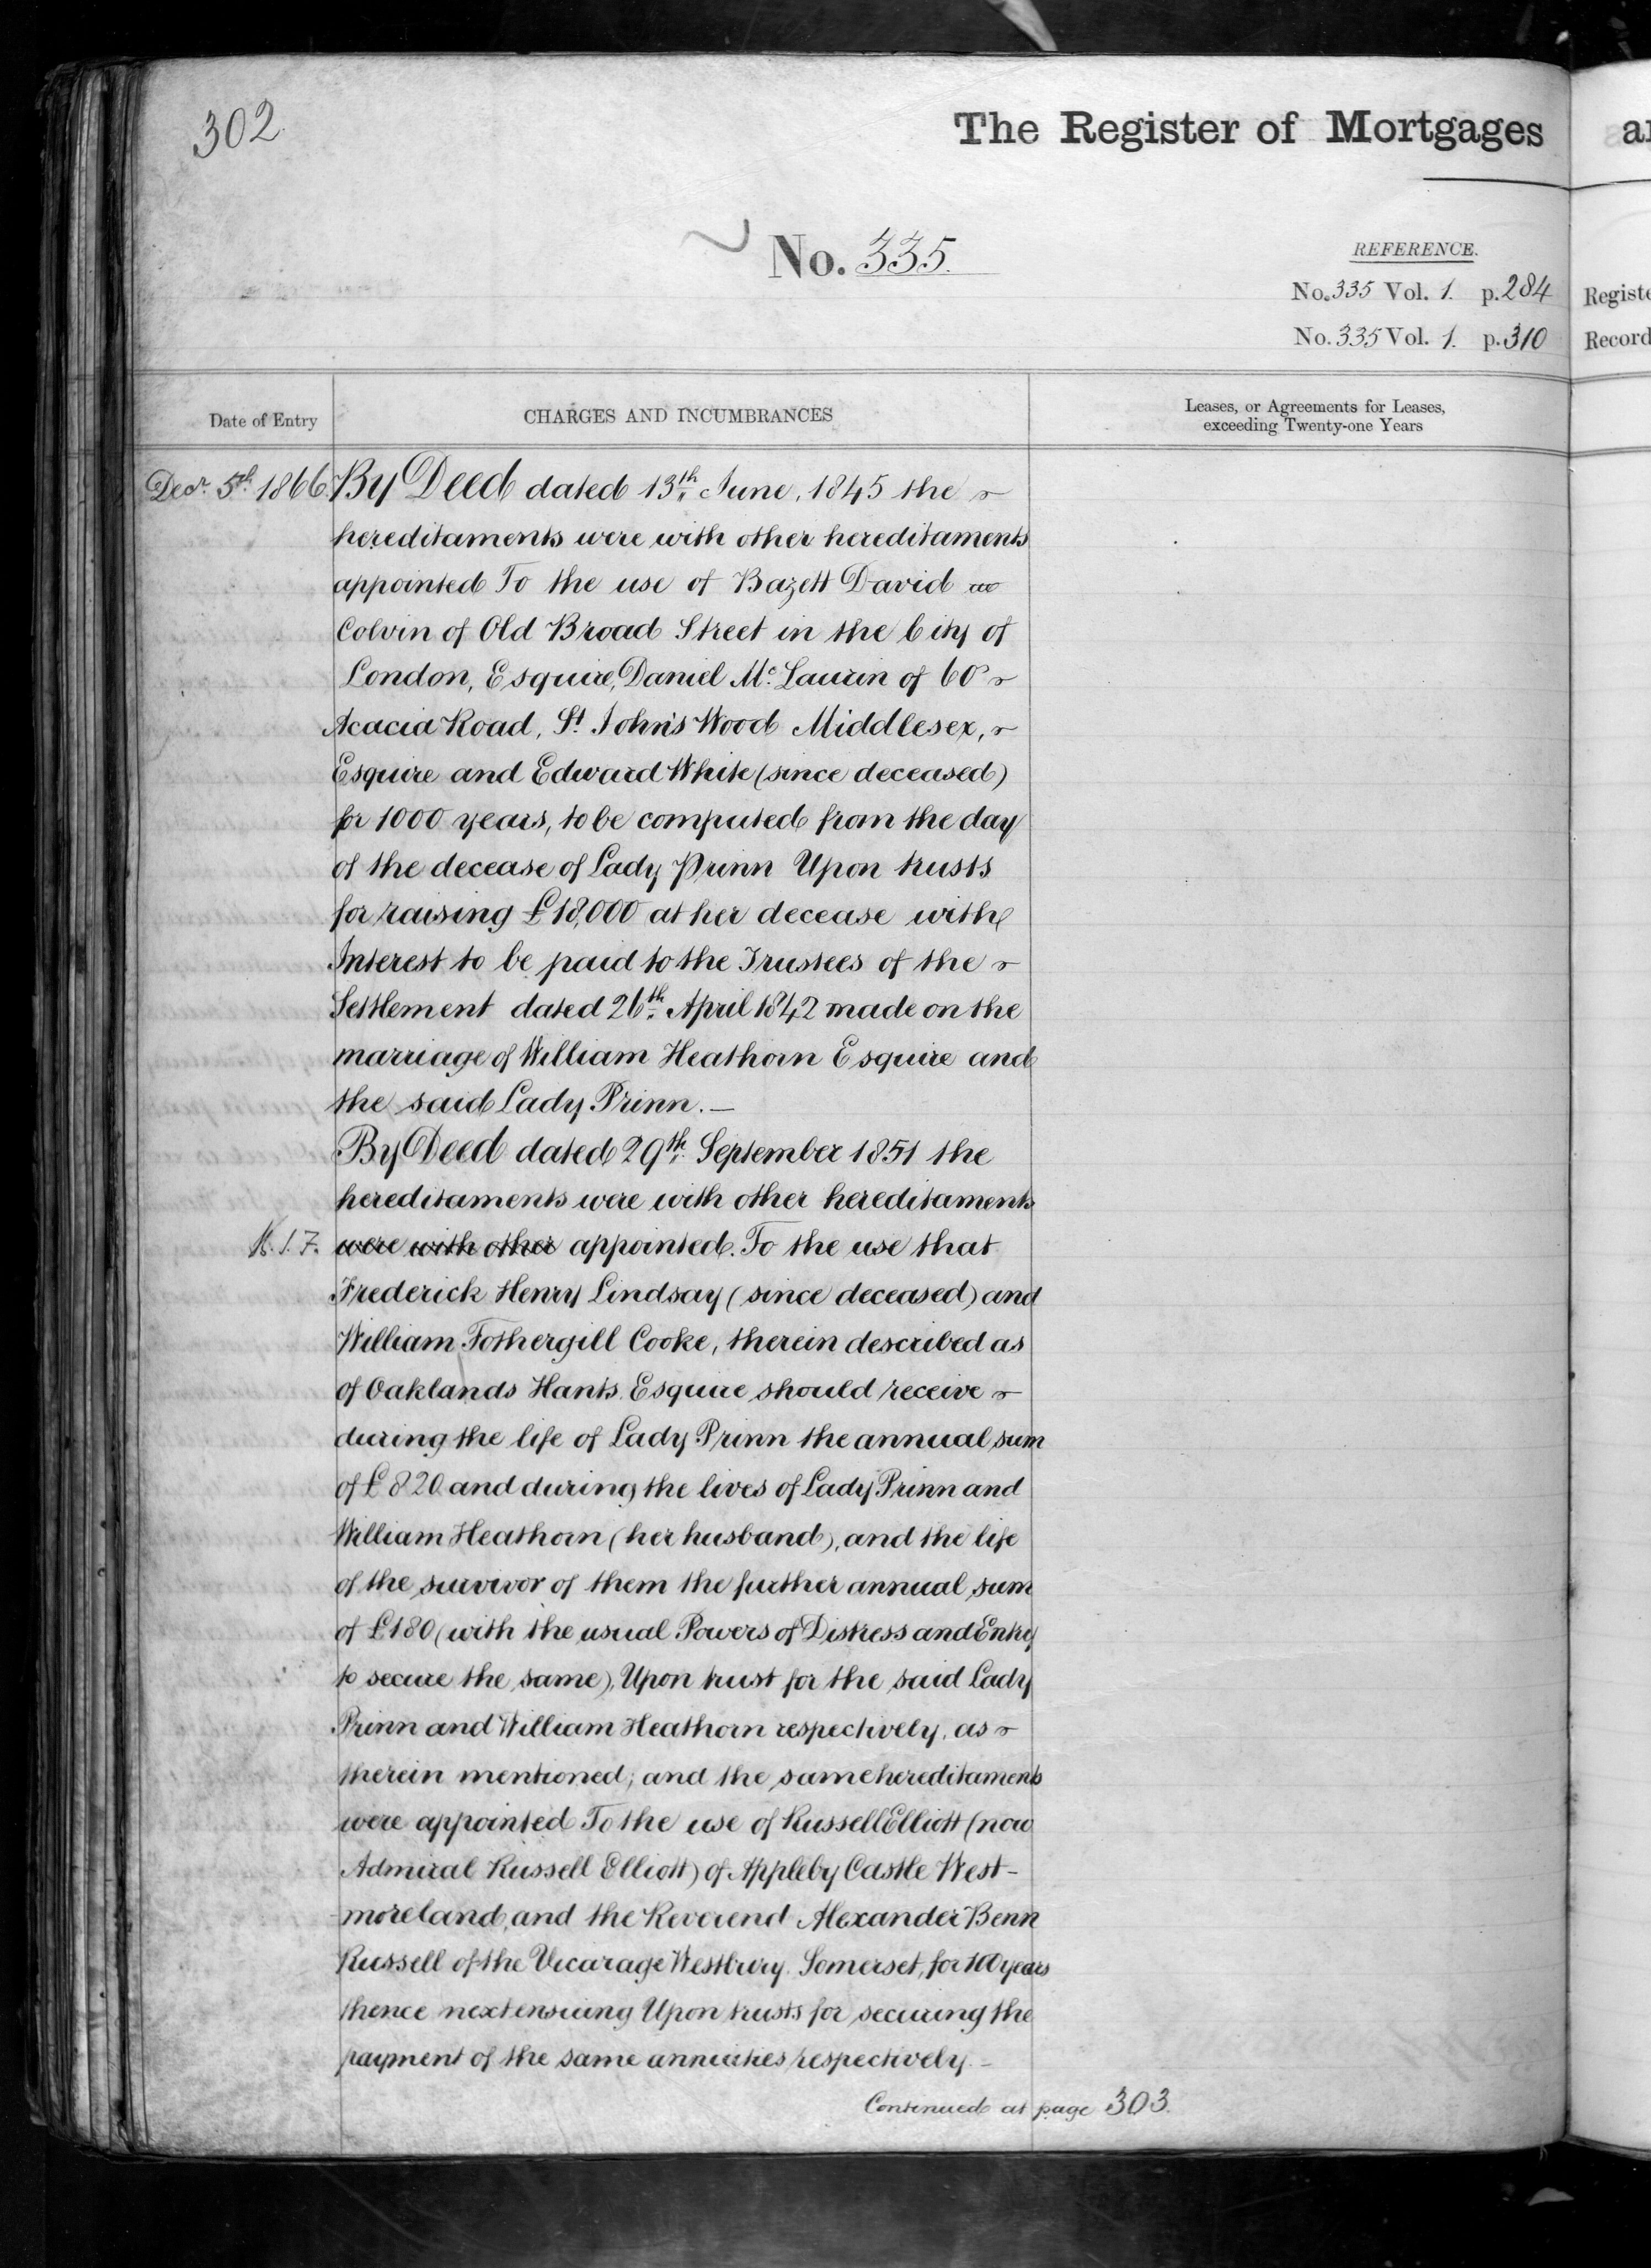 302
The Register of Mortgages
No. 335.
REFERENCE.
No. 335 Vol. 1. p. 284
No. 335 Vol. 1. p. 310
Registe
Record
Date of Entry
CHARGES AND INCUMBRANCES
Leases, or Agreements for Leases,
exceeding Twenty-one Years
Decr. 5th 1866. By Deed dated 13th June, 1845 the
hereditaments were with other hereditaments
appointed To the use of Bazett David
Colvin of Old Broad Street in the City of
London, Esquire, Daniel Mc. Laurin of 60
Acacia Road, St. John's Wood Middlesex,
Esquire and Edward White (since deceased)
for 1000 years, to be computed from the day
of the decease of Lady Prinn Upon trusts
for raising £18,000 at her decease with
Interest to be paid to the Trustees of the
Settlement dated 26th April 1842 made on the
marriage of William Heathorn Esquire and
the said Lady Prinn. —
By Deed dated 29th September 1851 the
hereditaments were with other hereditaments
were with other appointed. To the use that
Frederick Henry Lindsay (since deceased) and
William Fothergill Cooke, therein described as
of Oaklands Hants. Esquire should receive
during the life of Lady Prinn the annual sum
of £820 and during the lives of Lady Prinn and
William Heathorn (her husband), and the life
of the survivor of them the further annual sum
of £180 (with the usual Powers of Distress and Entry
to secure the same), Upon trust for the said Lady
Prinn and William Heathorn respectively, as
therein mentioned; and the same hereditaments
were appointed To the use of Russell Elliott (now
Admiral Russell Elliott) of Appleby Castle West-
moreland, and the Reverend Alexander Benn
Russell of the Vicarage Westbury Somerset, for 100 years
thence next ensuing Upon trusts for securing the
payment of the same annuities respectively. –
Continued at page 303.